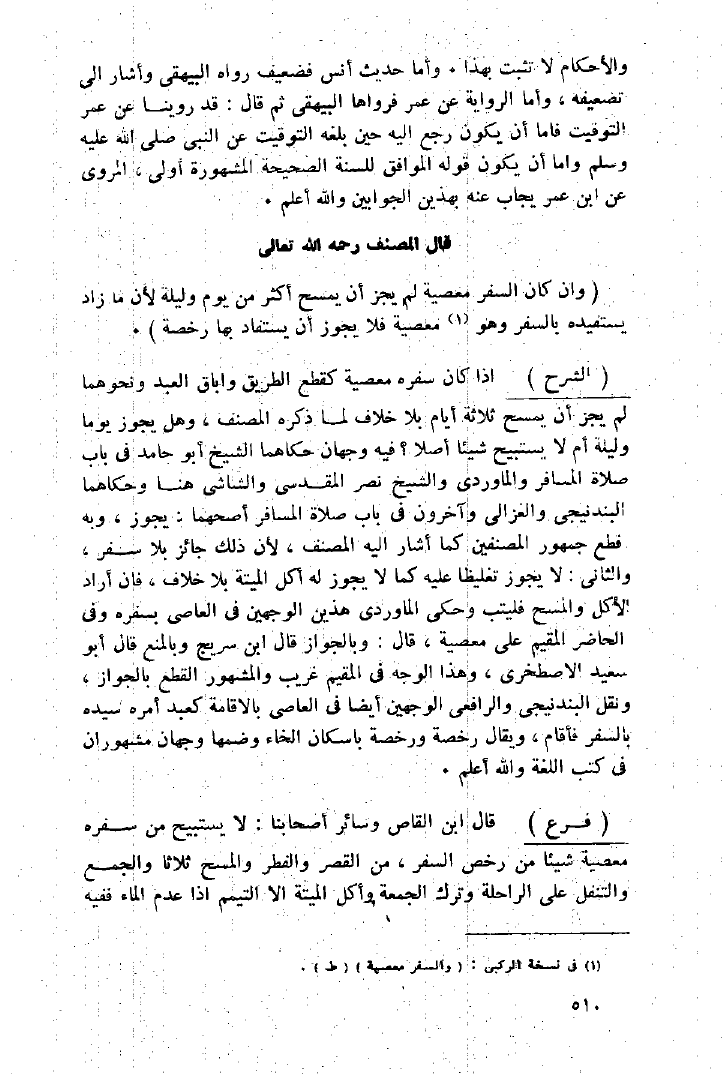 والأحكام لا تثبت بهذا ٠ وأما حديث أنس فضعيف رواه البيهقى وأشار الى
تضعيفه ، وأما الرواية عن عمر فرواها البيهقى ثم قال : قد روينـا عن عمر
التوقيت فاما أن يكون رجع اليه حين بلغه التوقيت عن النبى صلى الله عليه
وسلم واما أن يكون قوله الموافق للسنة الصحيحة المشهورة أولى ، المروى
عن ابن عمر يجاب عنه بهذين الجوابين والله أعلم ٠
قال المصنف رحمه الله تعالى
( وان كان السفر معصية لم يجز أن يمسح أكثر من يوم وليلة لأن ما زاد
يستفيده بالسفر وهو (١) معصية فلا يجوز أن يستفاد بها رخصة ) ٠
( الشرح ) اذا كان سفره معصية كقطع الطريق واباق العبد ونحوهما
لم يجز أن يمسح ثلاثة أيام بلا خلاف لمـا ذكره المصنف ، وهل يجوز يوما
وليلة أم لا يستبيح شيئا أصلا ؟ فيه وجهان حكاهما الشيخ أبو حامد فى باب
صلاة المسافر والماوردى والشيخ نصر المقـدسى والشاشى هنـا وحكاهما
البندنيجى والغزالى وآخرون فى باب صلاة المسافر أصحهما : يجوز ، وبه
قطع جمهور المصنفين كما أشار اليه المصنف ، لأن ذلك جائز بلا سـفر ،
والثانى : لا يجوز تغليظا عليه كما لا يجوز له أكل الميتة بلا خلاف ، فان أراد
الأكل والمسح فليتب وحكى الماوردى هذين الوجهين فى العاصى بسفره وفى
الحاضر المقيم على معصية ، قال : وبالجواز قال ابن سريج وبالمنع قال أبو
سعيد الاصطخرى ، وهذا الوجه فى المقيم غريب والمشهور القطع بالجواز ،
ونقل البندنيجى والرافعى الوجهين أيضا فى العاصى بالاقامة كعبد أمره سيده
بالسفر فأقام ، ويقال رخصة ورخصة باسكان الخاء وضمها وجهان مشهوران
فى كتب اللغة والله أعلم ٠
( فـرع ) قال ابن القاص وسائر أصحابنا : لا يستبيح من سـفره
معصية شيئا من رخص السفر ، من القصر والفطر والمسح ثلاثا والجمع
والتنفل على الراحلة وترك الجمعة وأكل الميتة الا التيمم اذا عدم الماء ففيه
(١) فى نسخة الركبى : ( والسفر معصية ) ( ط ) ٠
٥١٠